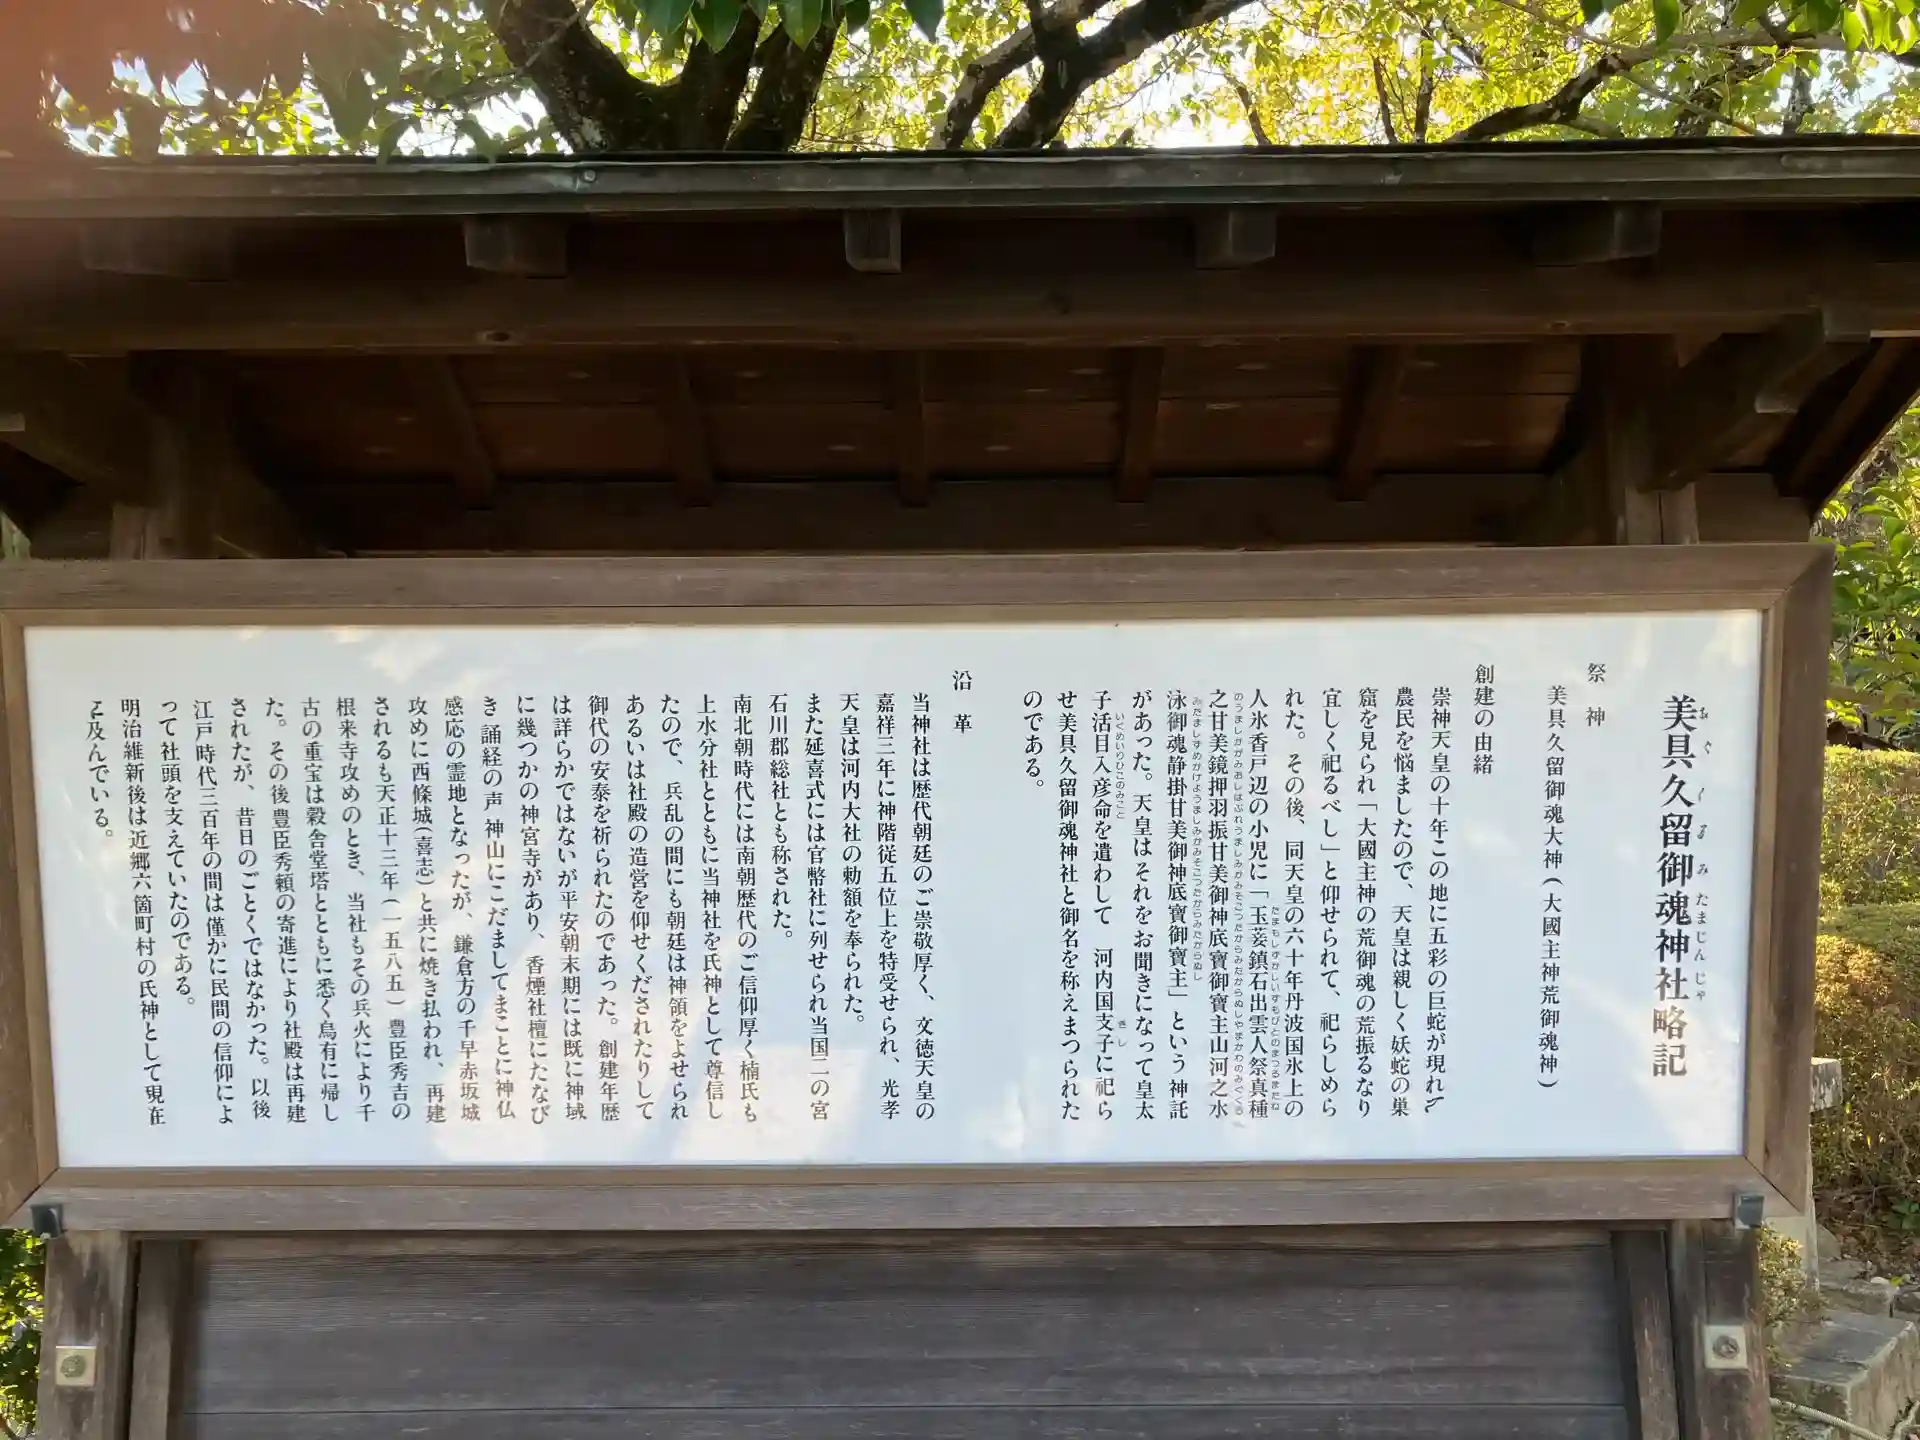 美具久留御魂神社略記
みぐくるみたまじんじゃ
祭神
美具久留御魂大神(大國主神荒御魂神)
創建の由緒
崇神天皇の十年この地に五彩の巨蛇が現れて
農民を悩ましたので、天皇は親しく妖蛇の巣
窟を見られ「大國主神の荒御魂の荒振るなり
宜しく祀るべし」と仰せられて、祀らしめら
れた。その後、同天皇の六十年丹波国氷上の
人氷香戸辺の小児に「玉萎鎮石出雲人祭真種
たまもしずかしいずもびとのまつるまたね
之甘美鏡押羽振甘美御神底寶御寶主山河之水
のうましかがみおしはぶれうましみかみそこつだからみだからぬしやまかわのみぐくる
泳御魂静掛甘美御神底寶御寶主」という神託
みたましずめかけようましみかみそこつたからみたからぬし
があった。天皇はそれをお聞きになって皇太
子活目入彦命を遣わして 河内国支子に祀ら
いくめいりひこのみこと
きし
せ美具久留御魂神社と御名を称えまつられた
のである。
沿革
当神社は歴代朝廷のご崇敬厚く、文徳天皇の
嘉祥三年に神階従五位上を特受せられ、光孝
天皇は河内大社の勅額を奉られた。
また延喜式には官幣社に列せられ当国二の宮
石川郡総社とも称された。
南北朝時代には南朝歴代のご信仰厚く楠氏も
上水分社とともに当神社を氏神として尊信し
たので、兵乱の間にも朝廷は神領をよせられ
あるいは社殿の造営を仰せくだされたりして
御代の安泰を祈られたのであった。創建年歴
は詳らかではないが平安朝末期には既に神域
に幾つかの神宮寺があり、香煙社檀にたなび
き 誦経の声 神山にこだましてまことに神仏
感応の霊地となったが、鎌倉方の千早赤坂城
攻めに西條城(喜志)と共に焼き払われ、再建
されるも天正十三年(一五八五)豊臣秀吉の
根来寺攻めのとき、当社もその兵火により千
古の重宝は穀舎堂塔とともに悉く烏有に帰し
た。その後豊臣秀頼の寄進により社殿は再建
されたが、昔日のごとくではなかった。以後
江戸時代三百年の間は僅かに民間の信仰によ
って社頭を支えていたのである。
明治維新後は近郷六箇町村の氏神として現在
に及んでいる。